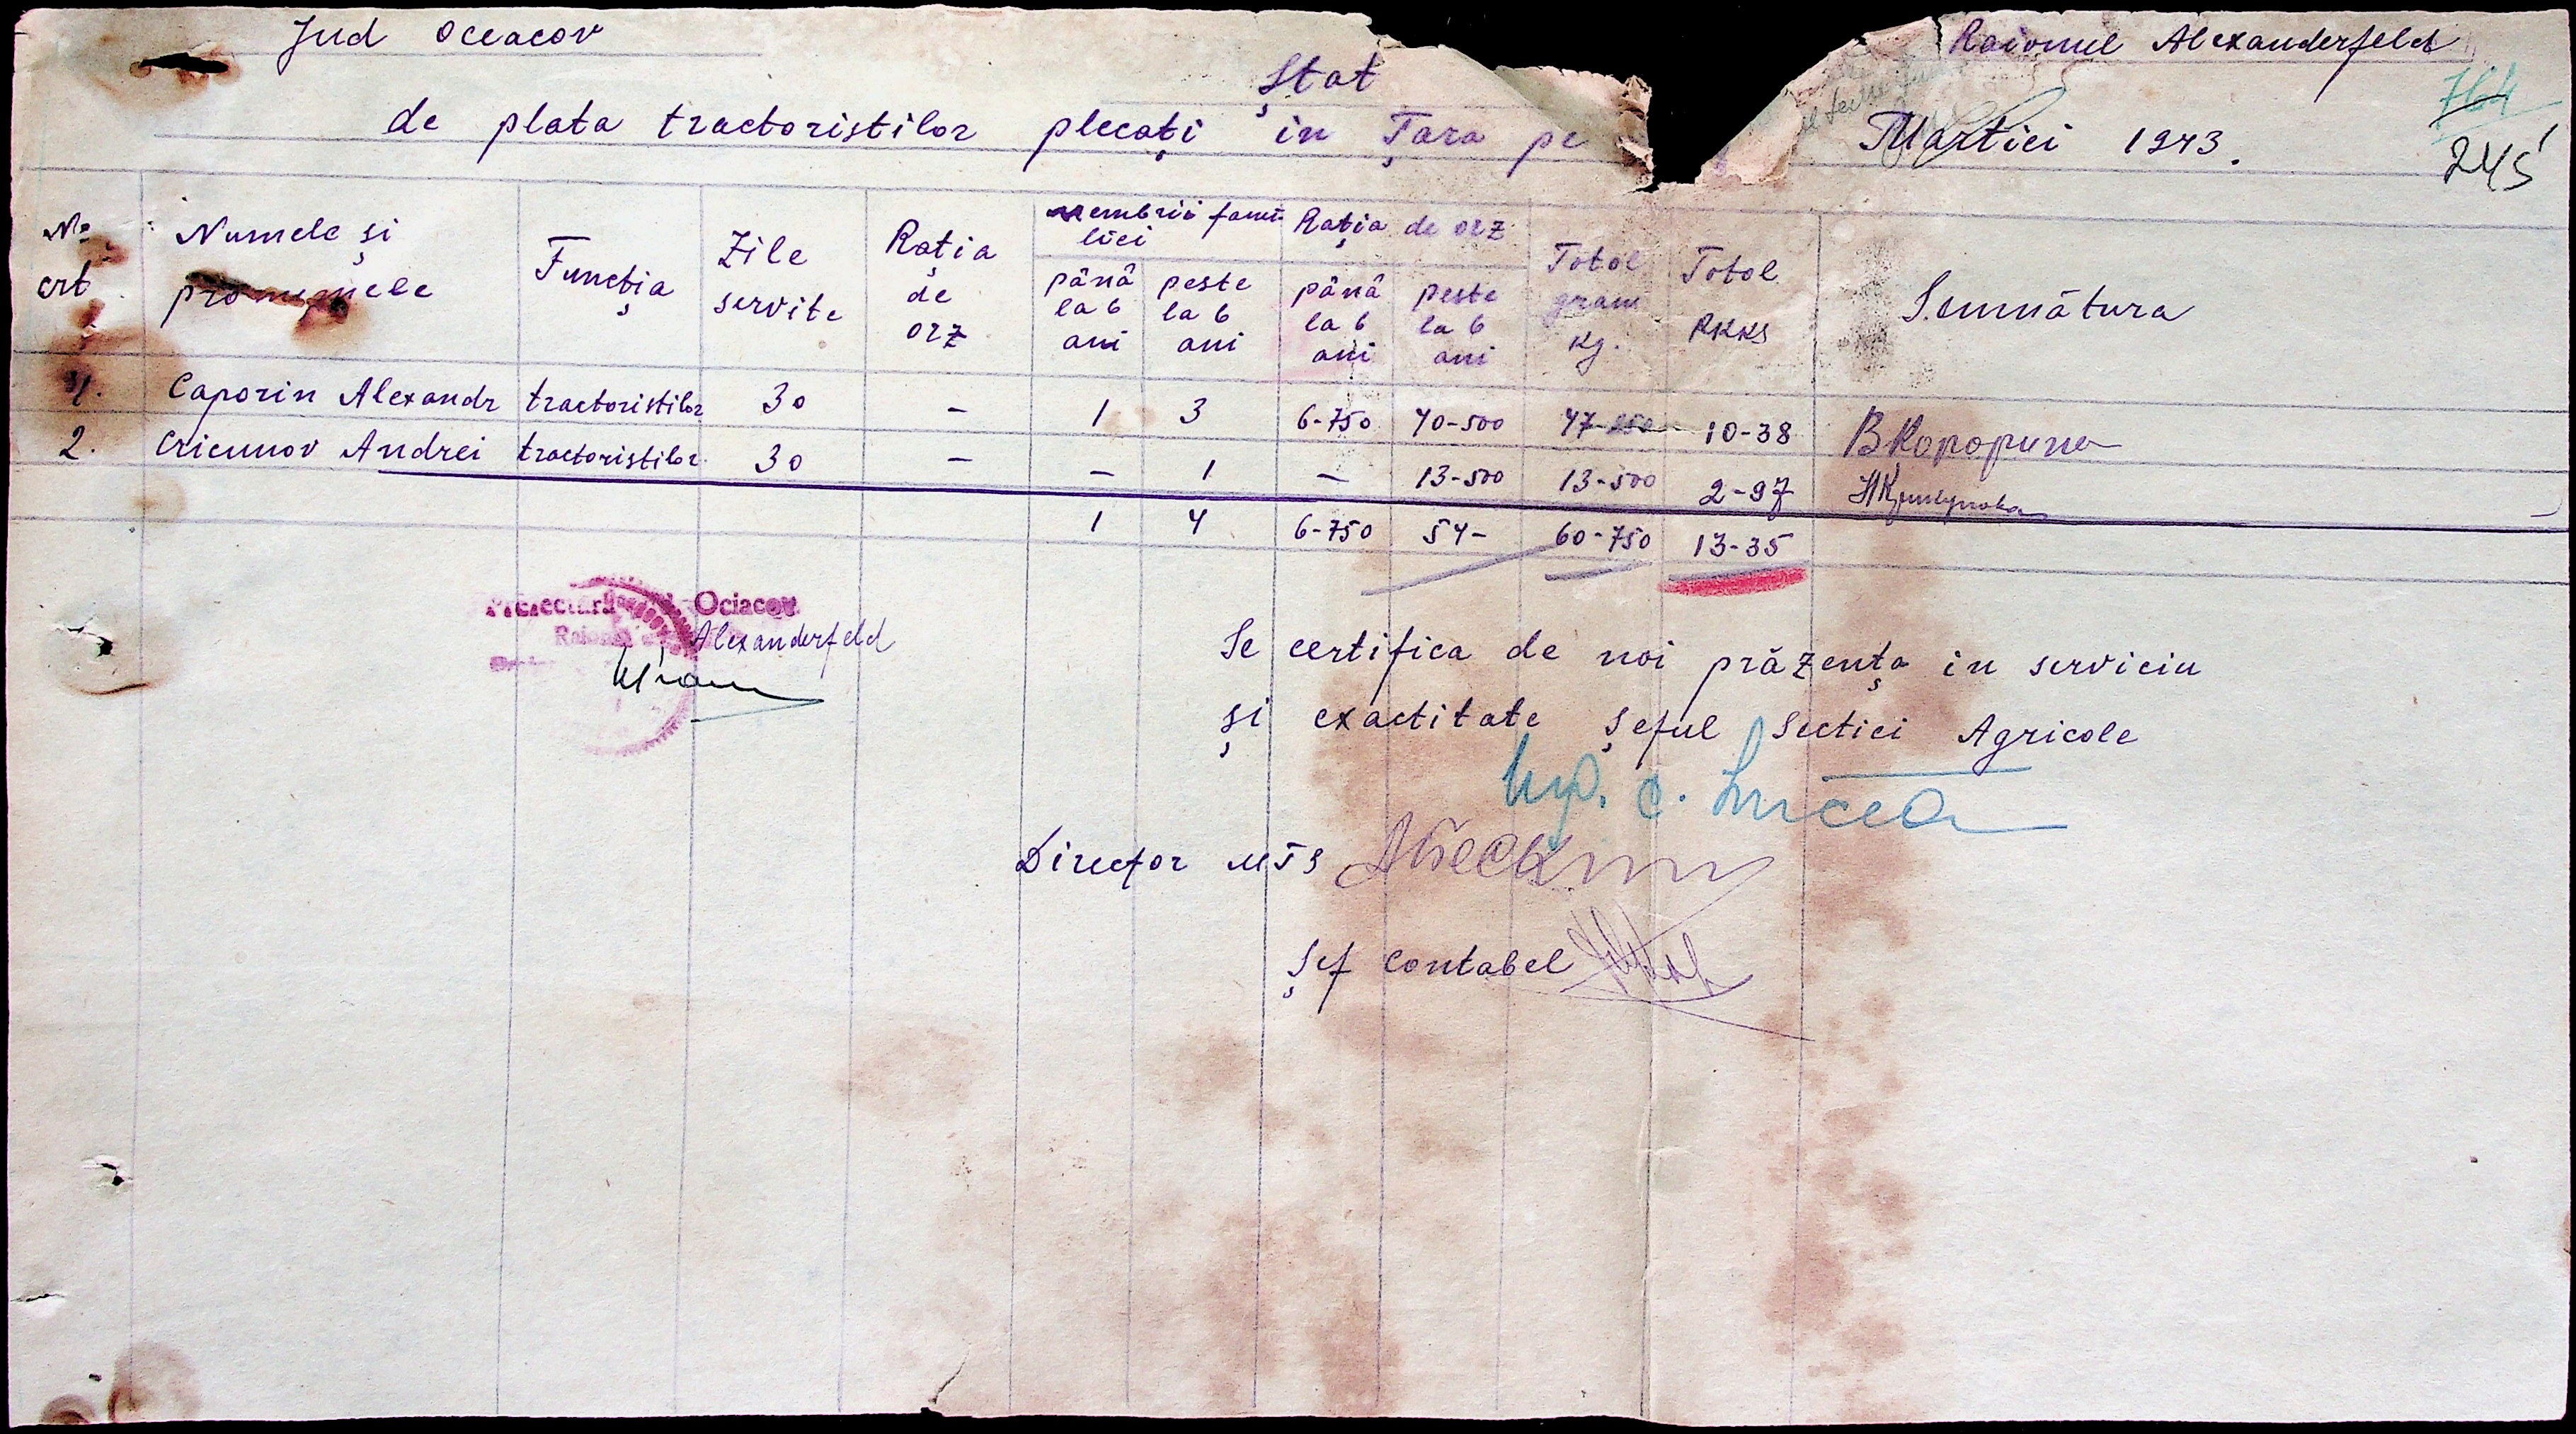 Jud Oceacov
Raionul Alexanderfeld
Ștat
764
de plata tractoristilor plecați in Țara pe Martiei 1943.
245
№ crt
Numele și pronumele
Funcția
Zile servite
Rația de orz
membrii familiei
până la 6 ani
peste la 6 ani
Rația de orz
până la 6 ani
peste la 6 ani
Totol gram kg.
Totol RKKS
Semnătura
1. Caporin Alexandr tractoristilor 30 - 1 3 6-750 40-500 47-250 10-38
2. Cricunov Andrei tractoristilor 30 - - 1 - 13-500 13-500 2-97
1 4 6-750 54- 60-750 13-35
Ociacov
Alexanderfeld
Se certifica de noi prăzența in serviciu
și exactitate Șeful Sectiei Agricole
Director MTS
Șef contabel